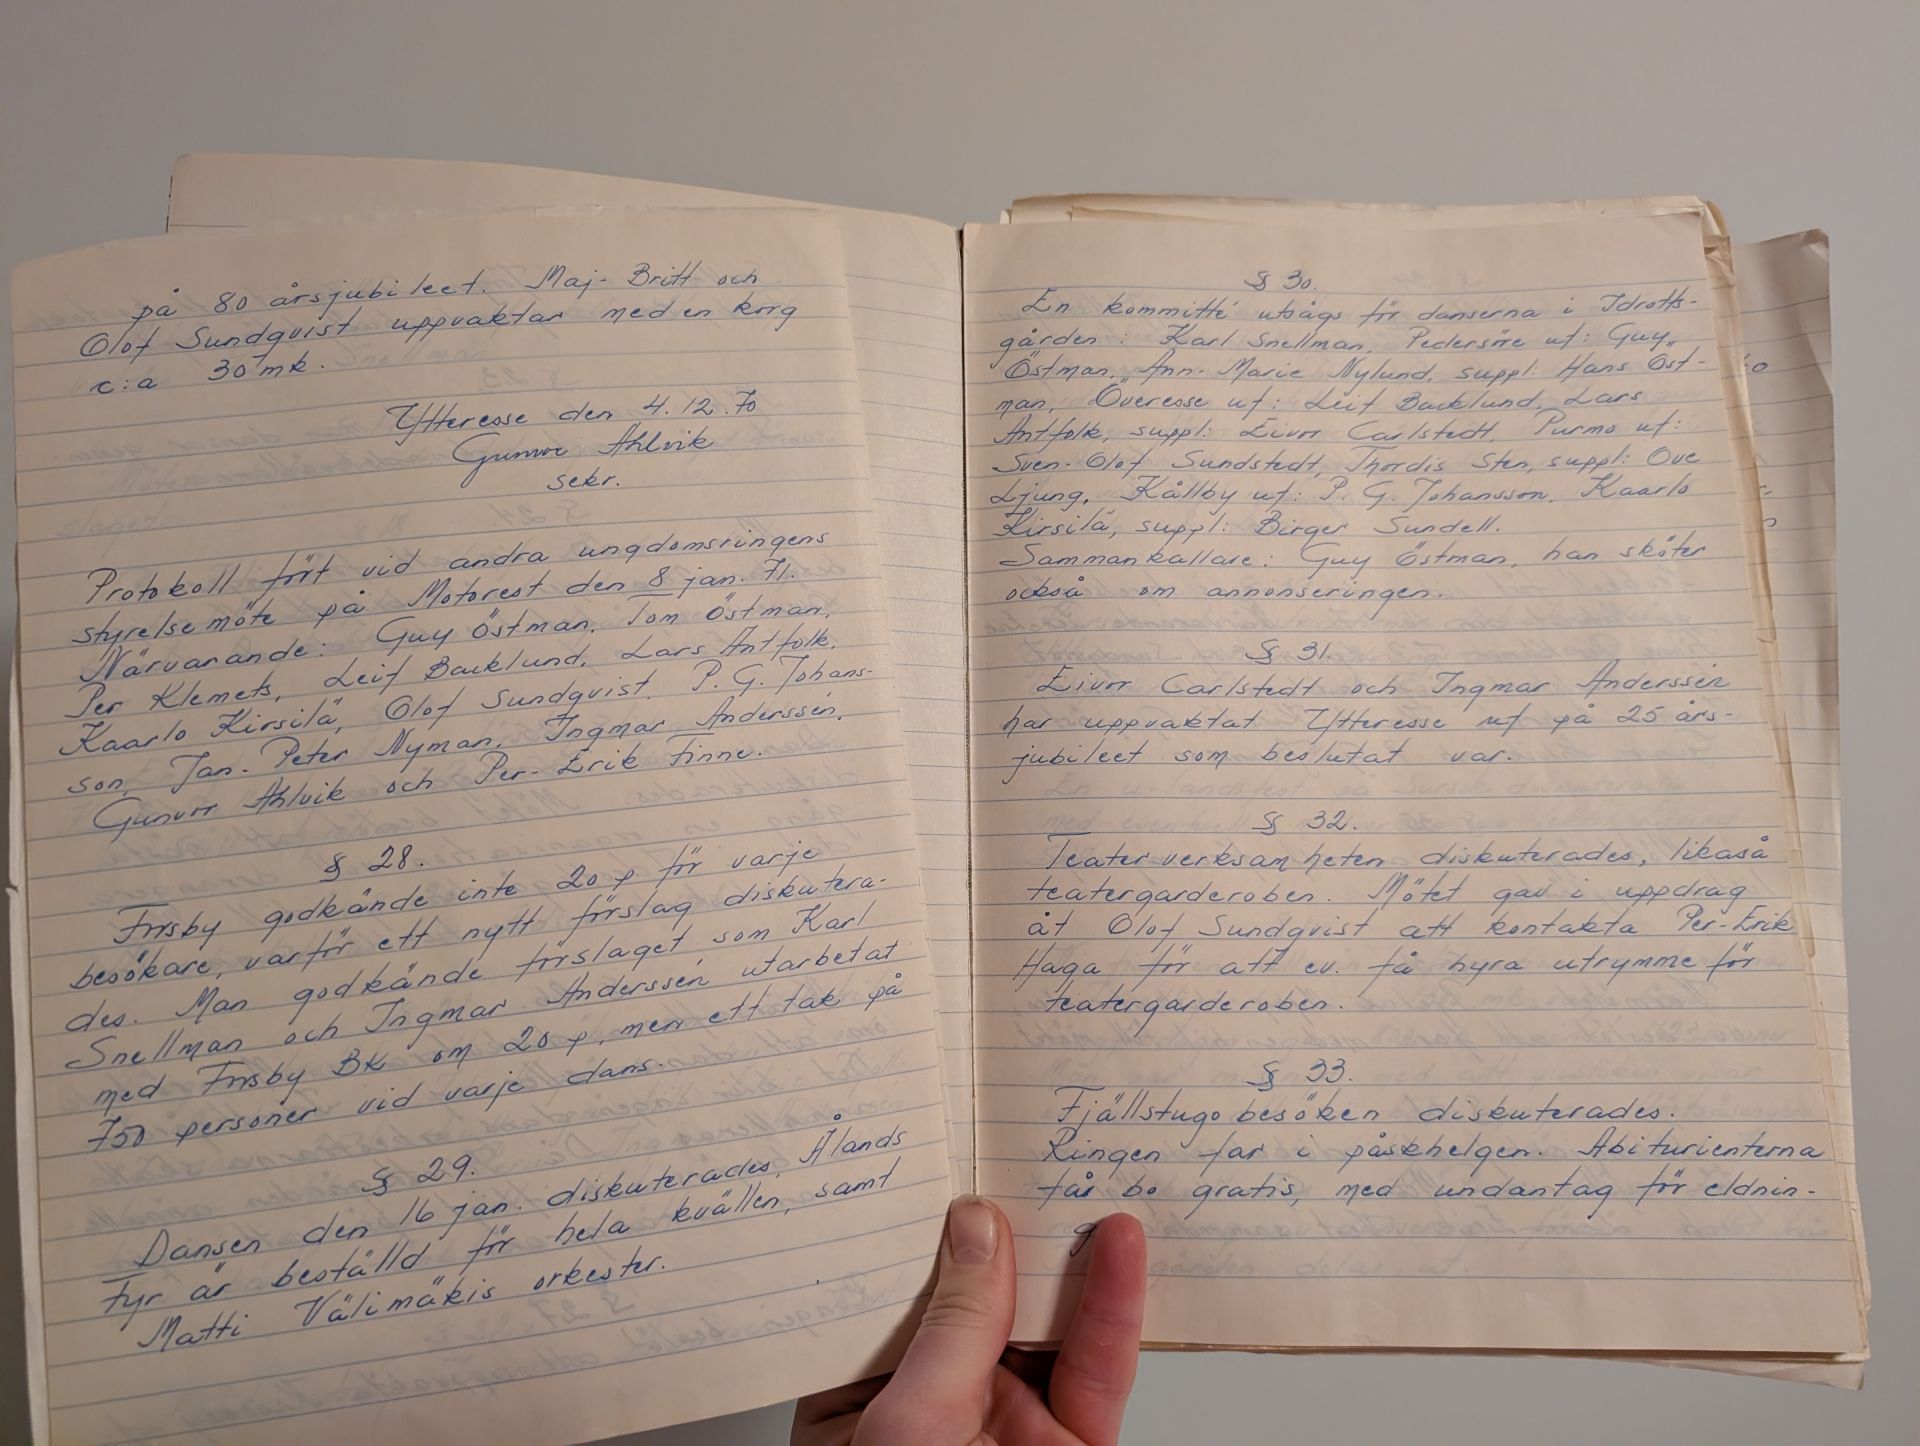 på 80 årsjubileet. Maj-Britt och
Olof Sundqvist uppvaktar med en korg
c:a 30 mk.
Ytteresse den 4.12.70
Gunvor Ahlvik
sekr.
Protokoll fört vid andra ungdomsringens
styrelsemöte på Motorest den 8 jan. 71.
Närvarande: Guy Östman, Tom Östman,
Per Klemets, Leif Backlund, Lars Antfolk,
Kaarlo Kirsilä, Olof Sundqvist, P. G. Johans-
son, Jan-Peter Nyman, Ingmar Anderssén,
Gunvor Ahlvik och Per-Erik Finne.
§ 28.
Forsby godkände inte 20 p för varje
besökare, varför ett nytt förslag diskutera-
des. Man godkände förslaget som Karl
Snellman och Ingmar Anderssén utarbetat
med Forsby BK om 20 p, men ett tak på
750 personer vid varje dans.
§ 29.
Dansen den 16 jan. diskuterades. Ålands
Fyr är beställd för hela kvällen, samt
Matti Välimäkis orkester.
§ 30.
En kommitté utsågs för danserna i Idrotts-
gården: Karl Snellman, Pedersöre uf: Guy
Östman, Ann-Marie Nylund, suppl: Hans Öst-
man, Överesse uf: Leif Backlund, Lars
Antfolk, suppl: Eivor Carlstedt, Purmo uf:
Sven-Olof Sundstedt, Thordis Sten, suppl: Ove
Ljung, Kållby uf: P. G. Johansson, Kaarlo
Kirsilä, suppl: Birger Sundell.
Sammankallare: Guy Östman, han sköter
också om annonseringen.
§ 31.
Eivor Carlstedt och Ingmar Anderssén
har uppvaktat Ytteresse uf på 25 års-
jubileet som beslutat var.
§ 32.
Teaterverksamheten diskuterades, likaså
teatergarderoben. Mötet gav i uppdrag
åt Olof Sundqvist att kontakta Per-Erik
Haga för att ev. få hyra utrymme för
teatergarderoben.
§ 33.
Fjällstugobesöken diskuterades.
Ringen far i påskhelgen. Abiturienterna
får bo gratis, med undantag för eldnin-
g